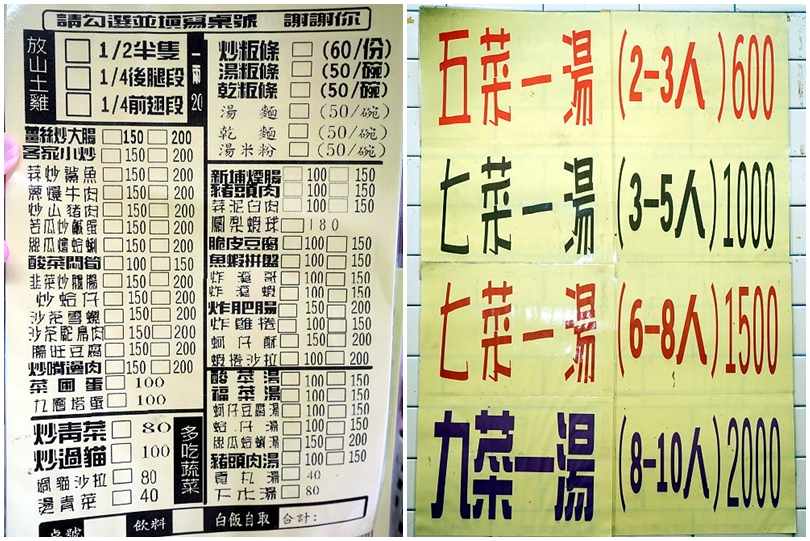 請勾選並填寫桌號 謝謝你
放山土雞
1/2半隻
1/4後腿段
1/4前翅段
一兩20
薑絲炒大腸 150 200
客家小炒 150 200
蒜炒鯊魚 150 200
蔥爆牛肉 150 200
炒山豬肉 150 200
苦瓜炒鹹蛋 150 200
絲瓜燴蛤蜊 150 200
酸菜悶筍 100 150
韭菜炒 150 200
炒蛤仔 150 200
沙茶雪螺 150 200
沙茶鴕鳥肉 150 200
腸旺豆腐 150 200
炒嘴邊肉 150 200
菜圃蛋 100
九層塔蛋 100
炒青菜 80
炒過貓 100
過貓沙拉 80
燙青菜 40
多吃蔬菜
炒粄條 (60/份)
湯粄條 (50/碗)
乾粄條 (50/碗)
湯麵 (50/碗)
乾麵 (50/碗)
湯米粉 (50/碗)
新埔煙腸 100 150
豬頭肉 100 150
蒜泥白肉 100 150
鳳梨蝦球 180
脆皮豆腐 100 150
魚蝦拼盤 100 150
炸溪哥 100 150
炸溪蝦 100 150
炸肥腸 150 200
炸雞捲 100 150
蚵仔酥 150 200
蝦捲沙拉 150 200
酸菜湯 100 150
福菜湯 100 150
蚵仔豆腐湯 100 150
蛤仔湯 100 150
絲瓜蛤蜊湯 150 200
豬頭肉湯 100 150
貢丸湯 40
下水湯 80
桌號 飲料 白飯自取 合計:
五菜一湯 (2-3人) 600
七菜一湯 (3-5人) 1000
七菜一湯 (6-8人) 1500
九菜一湯 (8-10人) 2000